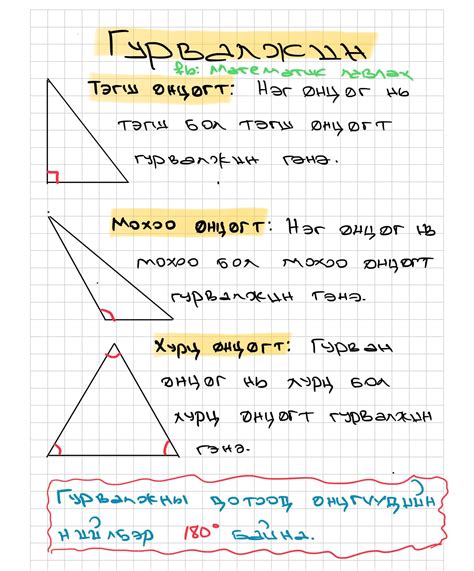 Гурвалжин
fb: Математик лавлах
Тэгш өнцөгт: Нэг өнцөг нь
тэгш бол тэгш өнцөгт
гурвалжин гэнэ.
Мохоо өнцөгт: Нэг өнцөг нь
мохоо бол мохоо өнцөгт
гурвалжин гэнэ.
Хурц өнцөгт: Гурван
өнцөг нь хурц бол
хурц өнцөгт гурвалжин
гэнэ.
Гурвалжны дотоод өнцгүүдийн
нийлбэр 180° байна.